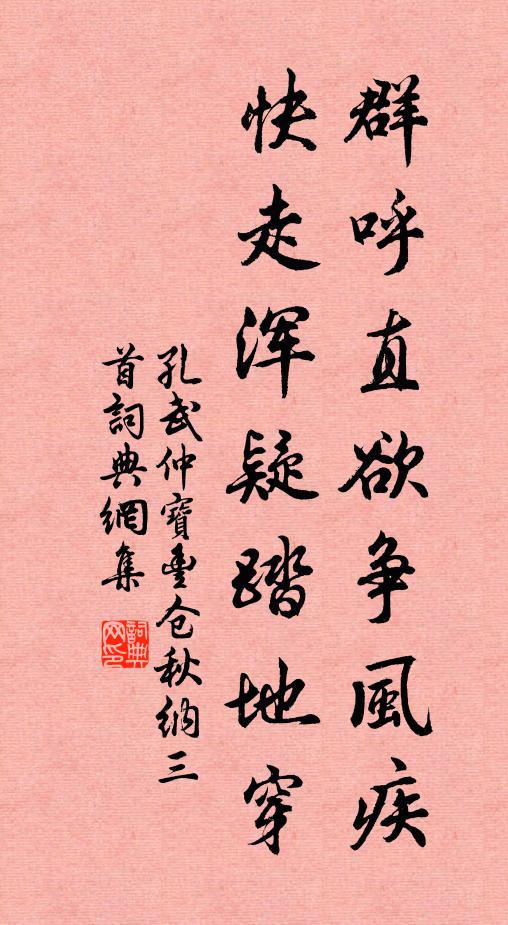 群呼直欲争風疾
快走浑疑踏地穿
孔武仲寶豐仓秋納三
首詞典網集
詞典网印